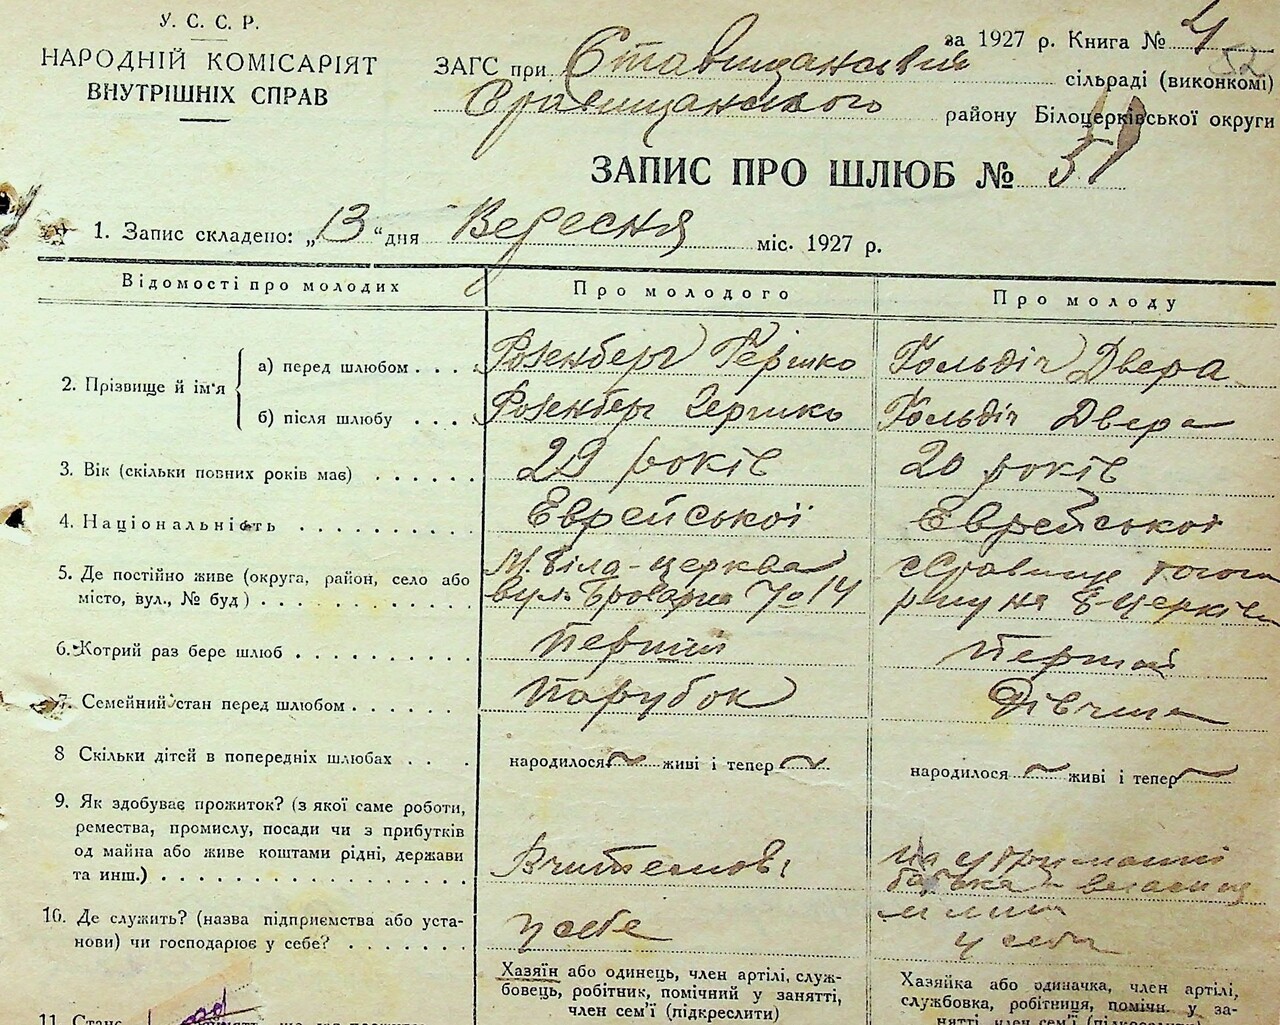 У. С. С. Р.
НАРОДНІЙ КОМІСАРІЯТ
ВНУТРІШНІХ СПРАВ
за 1927 р. Книга № 4
52
ЗАГС при Ставищанській сільраді (виконкомі)
Ставищанського району Білоцерківської округи
ЗАПИС ПРО ШЛЮБ № 51
1. Запис складено: „13“ дня Вересня міс. 1927 р.
Відомості про молодих Про молодого Про молоду
2. Прізвище й ім'я
а) перед шлюбом . . . . Розенберг Гершко Гольдіч Двера
б) після шлюбу . . . . Розенберг Гершко Гольдіч Двера
3. Вік (скільки повних років має) . . . . . . 29 років 20 років
4. Національність . . . . . . . . . . Еврейської Еврейської
5. Де постійно живе (округа, район, село або місто, вул., № буд) . . . . . . . . . . . .
М. Біла-церква
вул. 14
с Ставище
6. Котрий раз бере шлюб . . . . . . . . . . Перший Першой
7. Семейний стан перед шлюбом . . . . . . . Парубок Дівчина
8 Скільки дітей в попередніх шлюбах . . . . народилося ~ живі і тепер ~ народилося ~ живі і тепер ~
9. Як здобуває прожиток? (з якої саме роботи,
ремества, промислу, посади чи з прибутків
од майна або живе коштами рідні, держави
та инш.) . . . . . . . . . . . . . . . .
на утриманні
батька
10. Де служить? (назва підприємства або уста-
нови) чи господарює у себе? . . . . . . . у себе
у себе
Хазяїн або одинець, член артілі, служ-
бовець, робітник, помічний у занятті,
член сем'ї (підкреслити)
Хазяйка або одиначка, член артілі,
службовка, робітниця, помічн. у за-
нятті, член сем'ї (підкреслити)
11. Стане